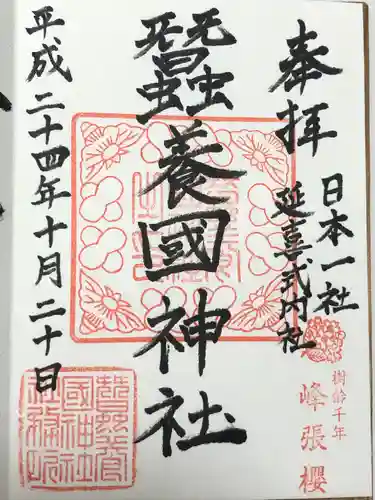 奉拝
日本一社
延喜式内社
樹齢千年
峰張櫻
蠶養國神社
平成二十四年十月二十日